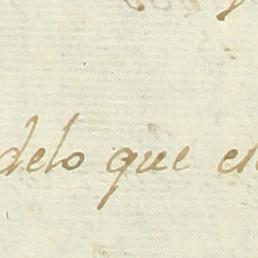 delo que en